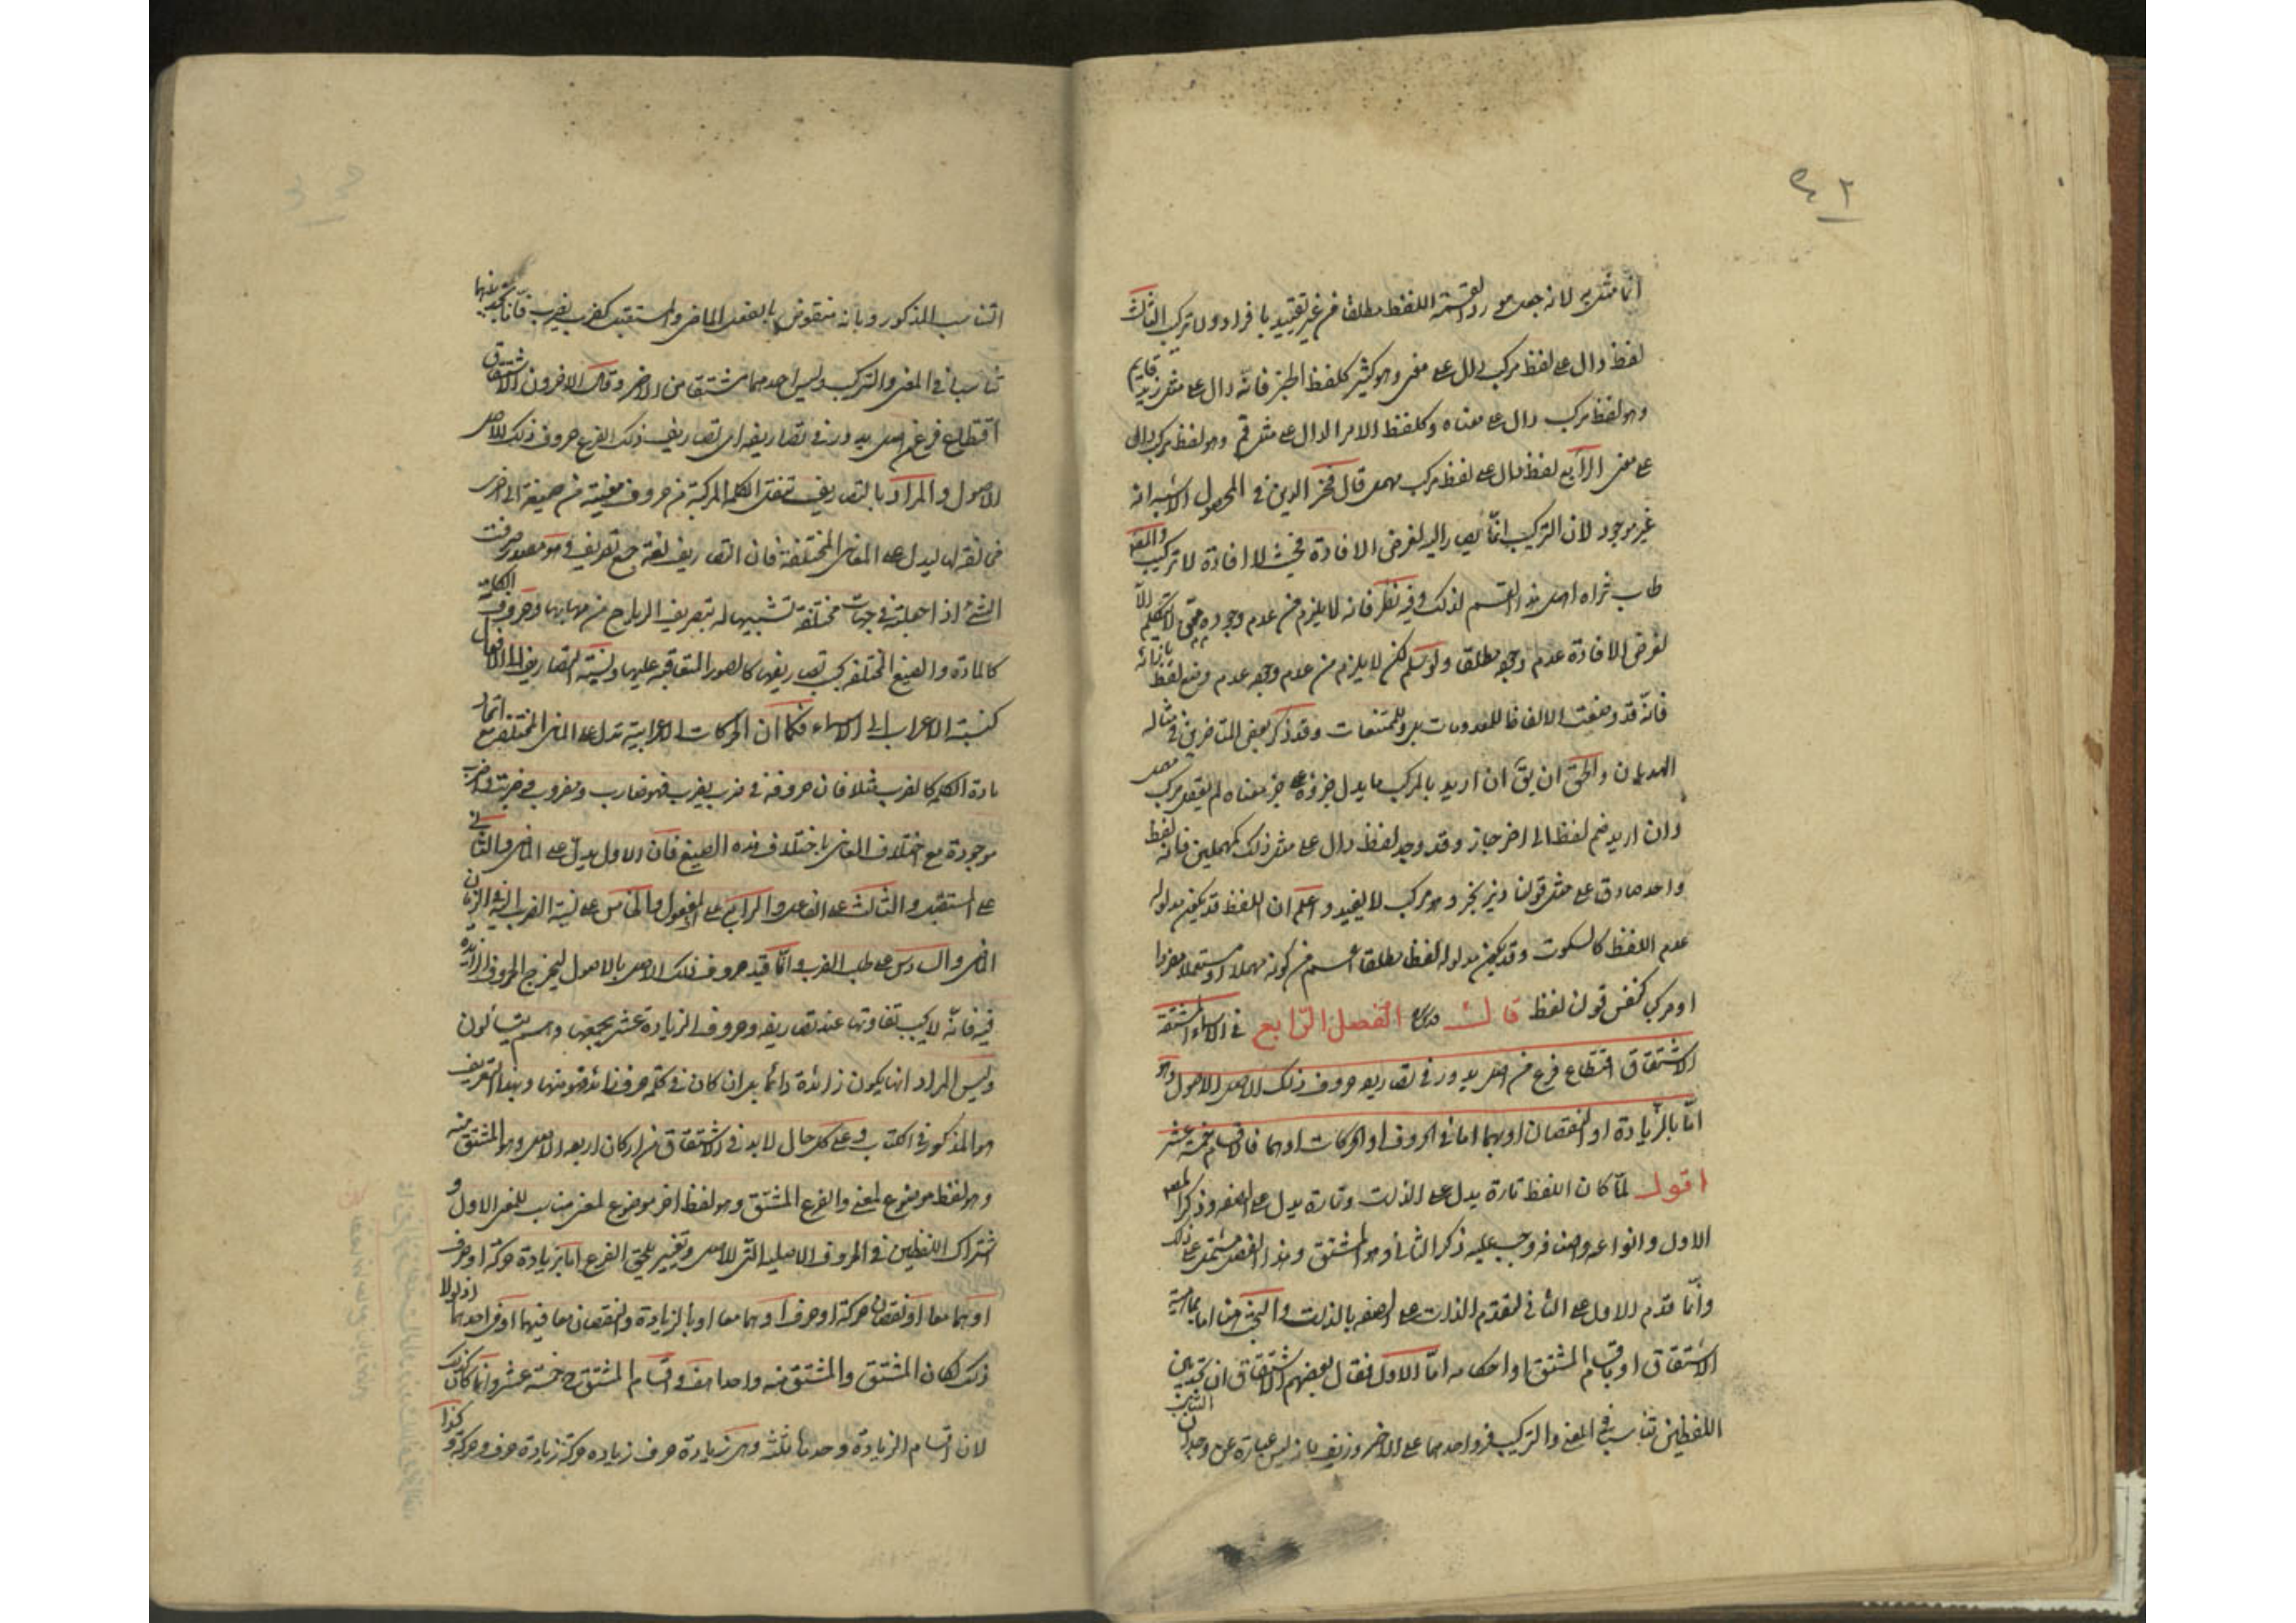 ٤٢
انما مثل به لانه جعل مورد القسمة اللفظ مطلقا من غير تقييد بافراد ولا تركيب الثالث
لفظ دال على لفظ مركب دال على معنى وهو كثير كلفظ الخبر فانه دال على مثل زيد قايم
وهو لفظ مركب دال على معناه وكلفظ الامر الدال على مثل قم وهو لفظ مركب دال
على معنى الرابع لفظ دال على لفظ مركب مهمل قال فخر الدين في المحصول الاشبه انه
غير موجود لان التركيب انما يصار اليه لغرض الافادة فحيث لا افادة لا تركيب والمصـ
طاب ثراه اهمل هذا القسم لذلك وفيه نظر فانه لا يلزم من عدم وجوده حتى التكلم الا
لغرض الافادة عدم وجوده مطلقا ولو سلم لكن لا يلزم من عدم وجوده عدم وضع لفظ بازائه
فانه قد وضعت الالفاظ للمعدومات بل وللممتنعات وقد ذكر بعض المتاخرين في مثاله
الهذيان والحق ان يق ان اريد بالمركب ما يدل جزؤه على جزء معناه لم يعقل مركب مهمل
وان اريد ضم لفظ الى اخر جاز وقد وجد لفظ دال على مثل ذلك كمهملين فانه لفظ
واحد صادق على مثل قولنا ديز بجز وهو مركب لا يفيد واعلم ان اللفظ قد يكون مدلوله
عدم اللفظ كالسكوت وقد يكون مدلوله لفظا مطلقا اعم من كونه مهملا او مستعملا مفردا
او مركبا كنفس قولنا لفظ قال الفصل الرابع في الاسماء المشتقة
الاشتقاق اقتطاع فرع من اصل يدور في تصاريفه حروف ذلك الاصل الاصول وهو
اما بالزيادة او النقصان او بهما اما في الحروف او الحركات او هما فالاقسام خمسة عشر
اقول لما كان اللفظ تارة يدل على الذات وتارة يدل على الصفة وذكر المصـ
الاول وانواعه واصنافه وجب عليه ذكر الثاني وهو المشتق وهذا الفصل مشتمل على ذلك
وانما قدم الاول على الثاني لتقدم الذات على الصفة بالذات والبحث هنا اما بماهية
الاشتقاق او باقسام المشتق او احكامه اما الاول فقال بعضهم الاشتقاق ان تجد بين
اللفظين تناسبا في المعنى والتركيب فرد احدهما على الاخر وزيف بانه ليس عبارة عن وجدان
التناسب
التناسب المذكور وبانه منقوض بالفعل الماضي والمستقبل كضرب يضرب فانا نجد بينهما
تناسبا في المعنى والتركيب وليس احدهما مشتقا من الاخر وقال الاخرون الاشتقاق
اقتطاع فرع من اصل يدور في تصاريفه اي تصاريف ذلك الفرع حروف ذلك الاصل
الاصول والمراد بالتصاريف تنقل الكلمة المركبة من حروف معينة من صيغة الى اخرى
مخالفة لها ليدل على المعاني المختلفة فان التصاريف لغة جمع تصريف وهو مصدر صرفت
الشيء اذا جعلته في جهات مختلفة تشبيها له بتصريف الرياح من مهابها وحروف الكلمة
كالمادة والصيغ المختلفة بحسب تصاريفها كالصور المتعاقبة عليها ونسبة التصاريف الى الافعال
كنسبة الاعراب الى الاسماء فكما ان الحركات الاعرابية تدل على المعاني المختلفة مع اتحاد
مادة الكلمة كالضرب مثلا فان حروفه في ضرب يضرب فهو ضارب ومضروب في ضربت واضرب
موجودة مع اختلاف المعاني باختلاف هذه الصيغ فان الاول يدل على الماضي والثاني
على المستقبل والثالث على الفاعل والرابع على المفعول والخامس على نسبة الضرب اليه في الزمان
الماضي والسادس على طلب الضرب وانما قيد حروف ذلك الاصل بالاصول ليخرج الحروف الزائدة
فيه فانه لا يجب تفاوتها عند تصاريفه وحروف الزيادة عشر يجمعها وهم يتسائلون
وليس المراد انها يكون زائدة دائما بل ان كان في كلمة حرف زائد فهو منها وهذا التعريف
هو المذكور في الكتاب وعلى كل حال لابد في الاشتقاق من اركان اربعة الاصل وهو المشتق منه
وهو لفظ موضوع لمعنى والفرع المشتق وهو لفظ اخر موضوع لمعنى مناسب للمعنى الاول و
اشتراك اللفظين في الحروف الاصلية التي للاصل وتغيير يلحق الفرع اما بزيادة حركة او حرف
او هما معا او نقصان حركة او حرف او هما معا او بالزيادة والنقصان معا فيهما او في احدهما اذ لولا
ذلك لكان المشتق والمشتق منه واحدا هف واقسام المشتق ح خمسة عشر وانما كان كذلك
لان اقسام الزيادة وحدها ثلثة وهي زيادة حرف زيادة حركة زيادة حرف وحركة وكذا